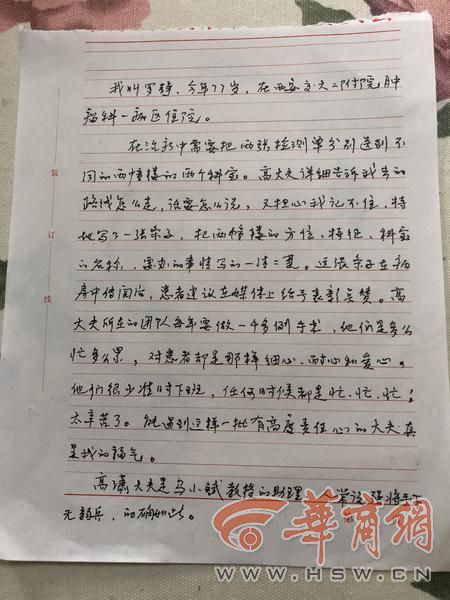 我叫罗静，今年77岁，在西安交大二附院肿
瘤科一病区住院。
在治疗中需要把两张检测单分别送到不
同的两幢楼的两个科室。高大夫详细告诉我去的
路线怎么走，话要怎么说，又担心我记不住，特
地写了一张条子，把两幢楼的方位、特征、科室
的名称、要办的事情写的一清二楚。这张条子在病
房中传阅后，患者建议在媒体上给予表彰点赞。高
大夫所在的团队每年要做一千多例手术，他们是多么
忙多么累，对患者都是那样细心、耐心和爱心。
他们很少准时下班，任何时候都是忙、忙、忙；
太辛苦了。能遇到这样一批有高度责任心的大夫真
是我的福气。
高潇大夫是马小斌教授的助理，人常说强将手下
无弱兵，的确如此。
装
订
线
华商网
WWW.HSW.CN